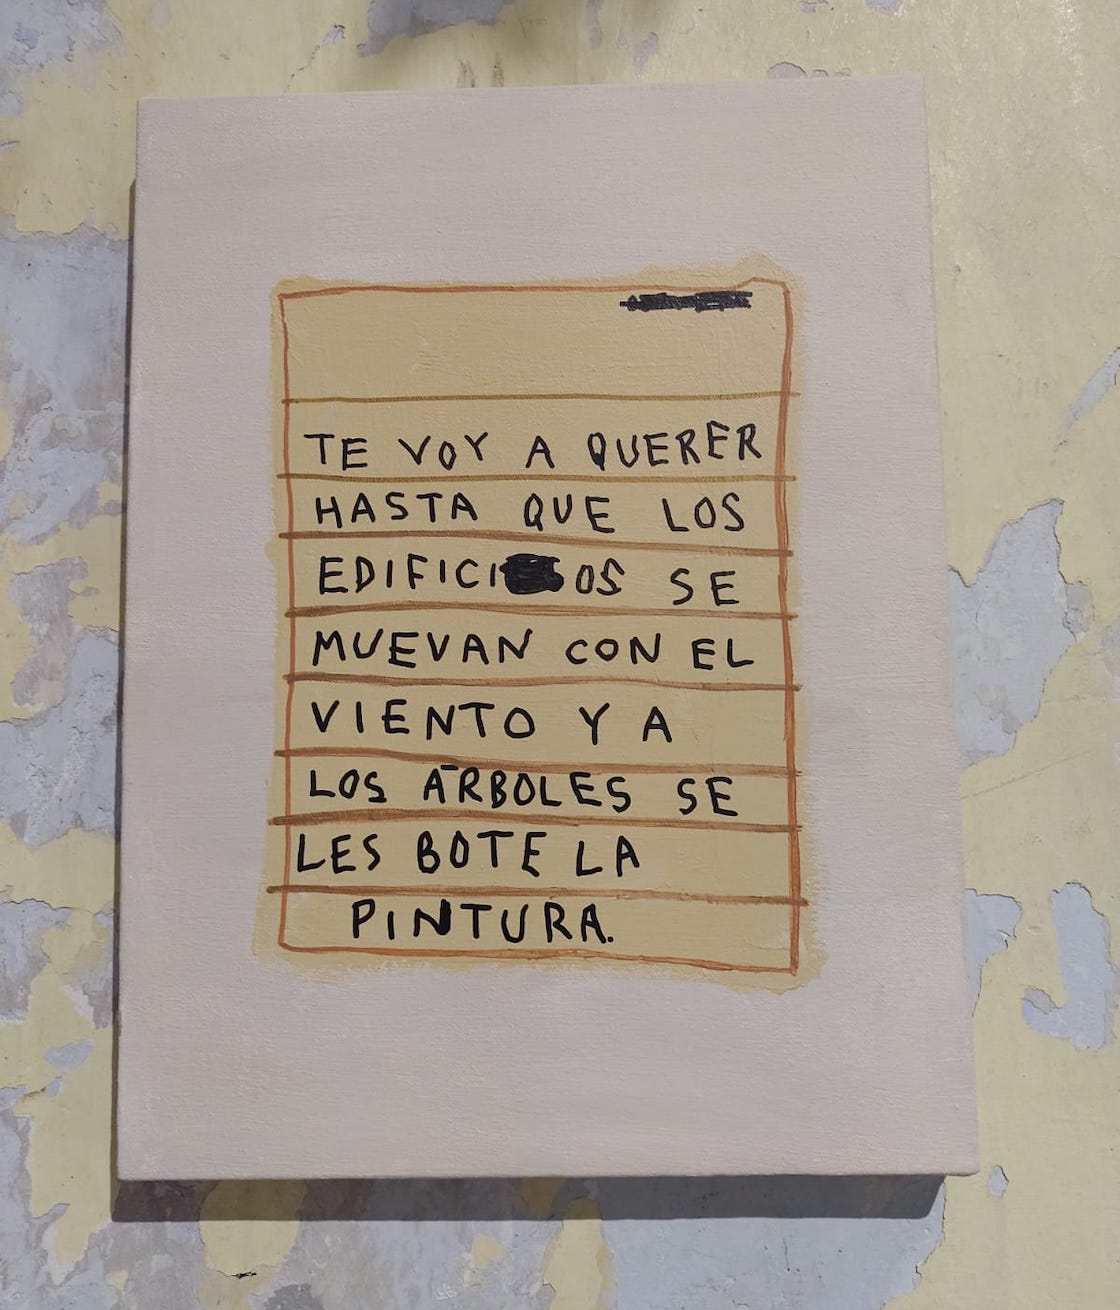 TE VOY A QUERER
HASTA QUE LOS
EDIFICI OS SE
MUEVAN CON EL
VIENTO Y A
LOS ÁRBOLES SE
LES BOTE LA
PINTURA.